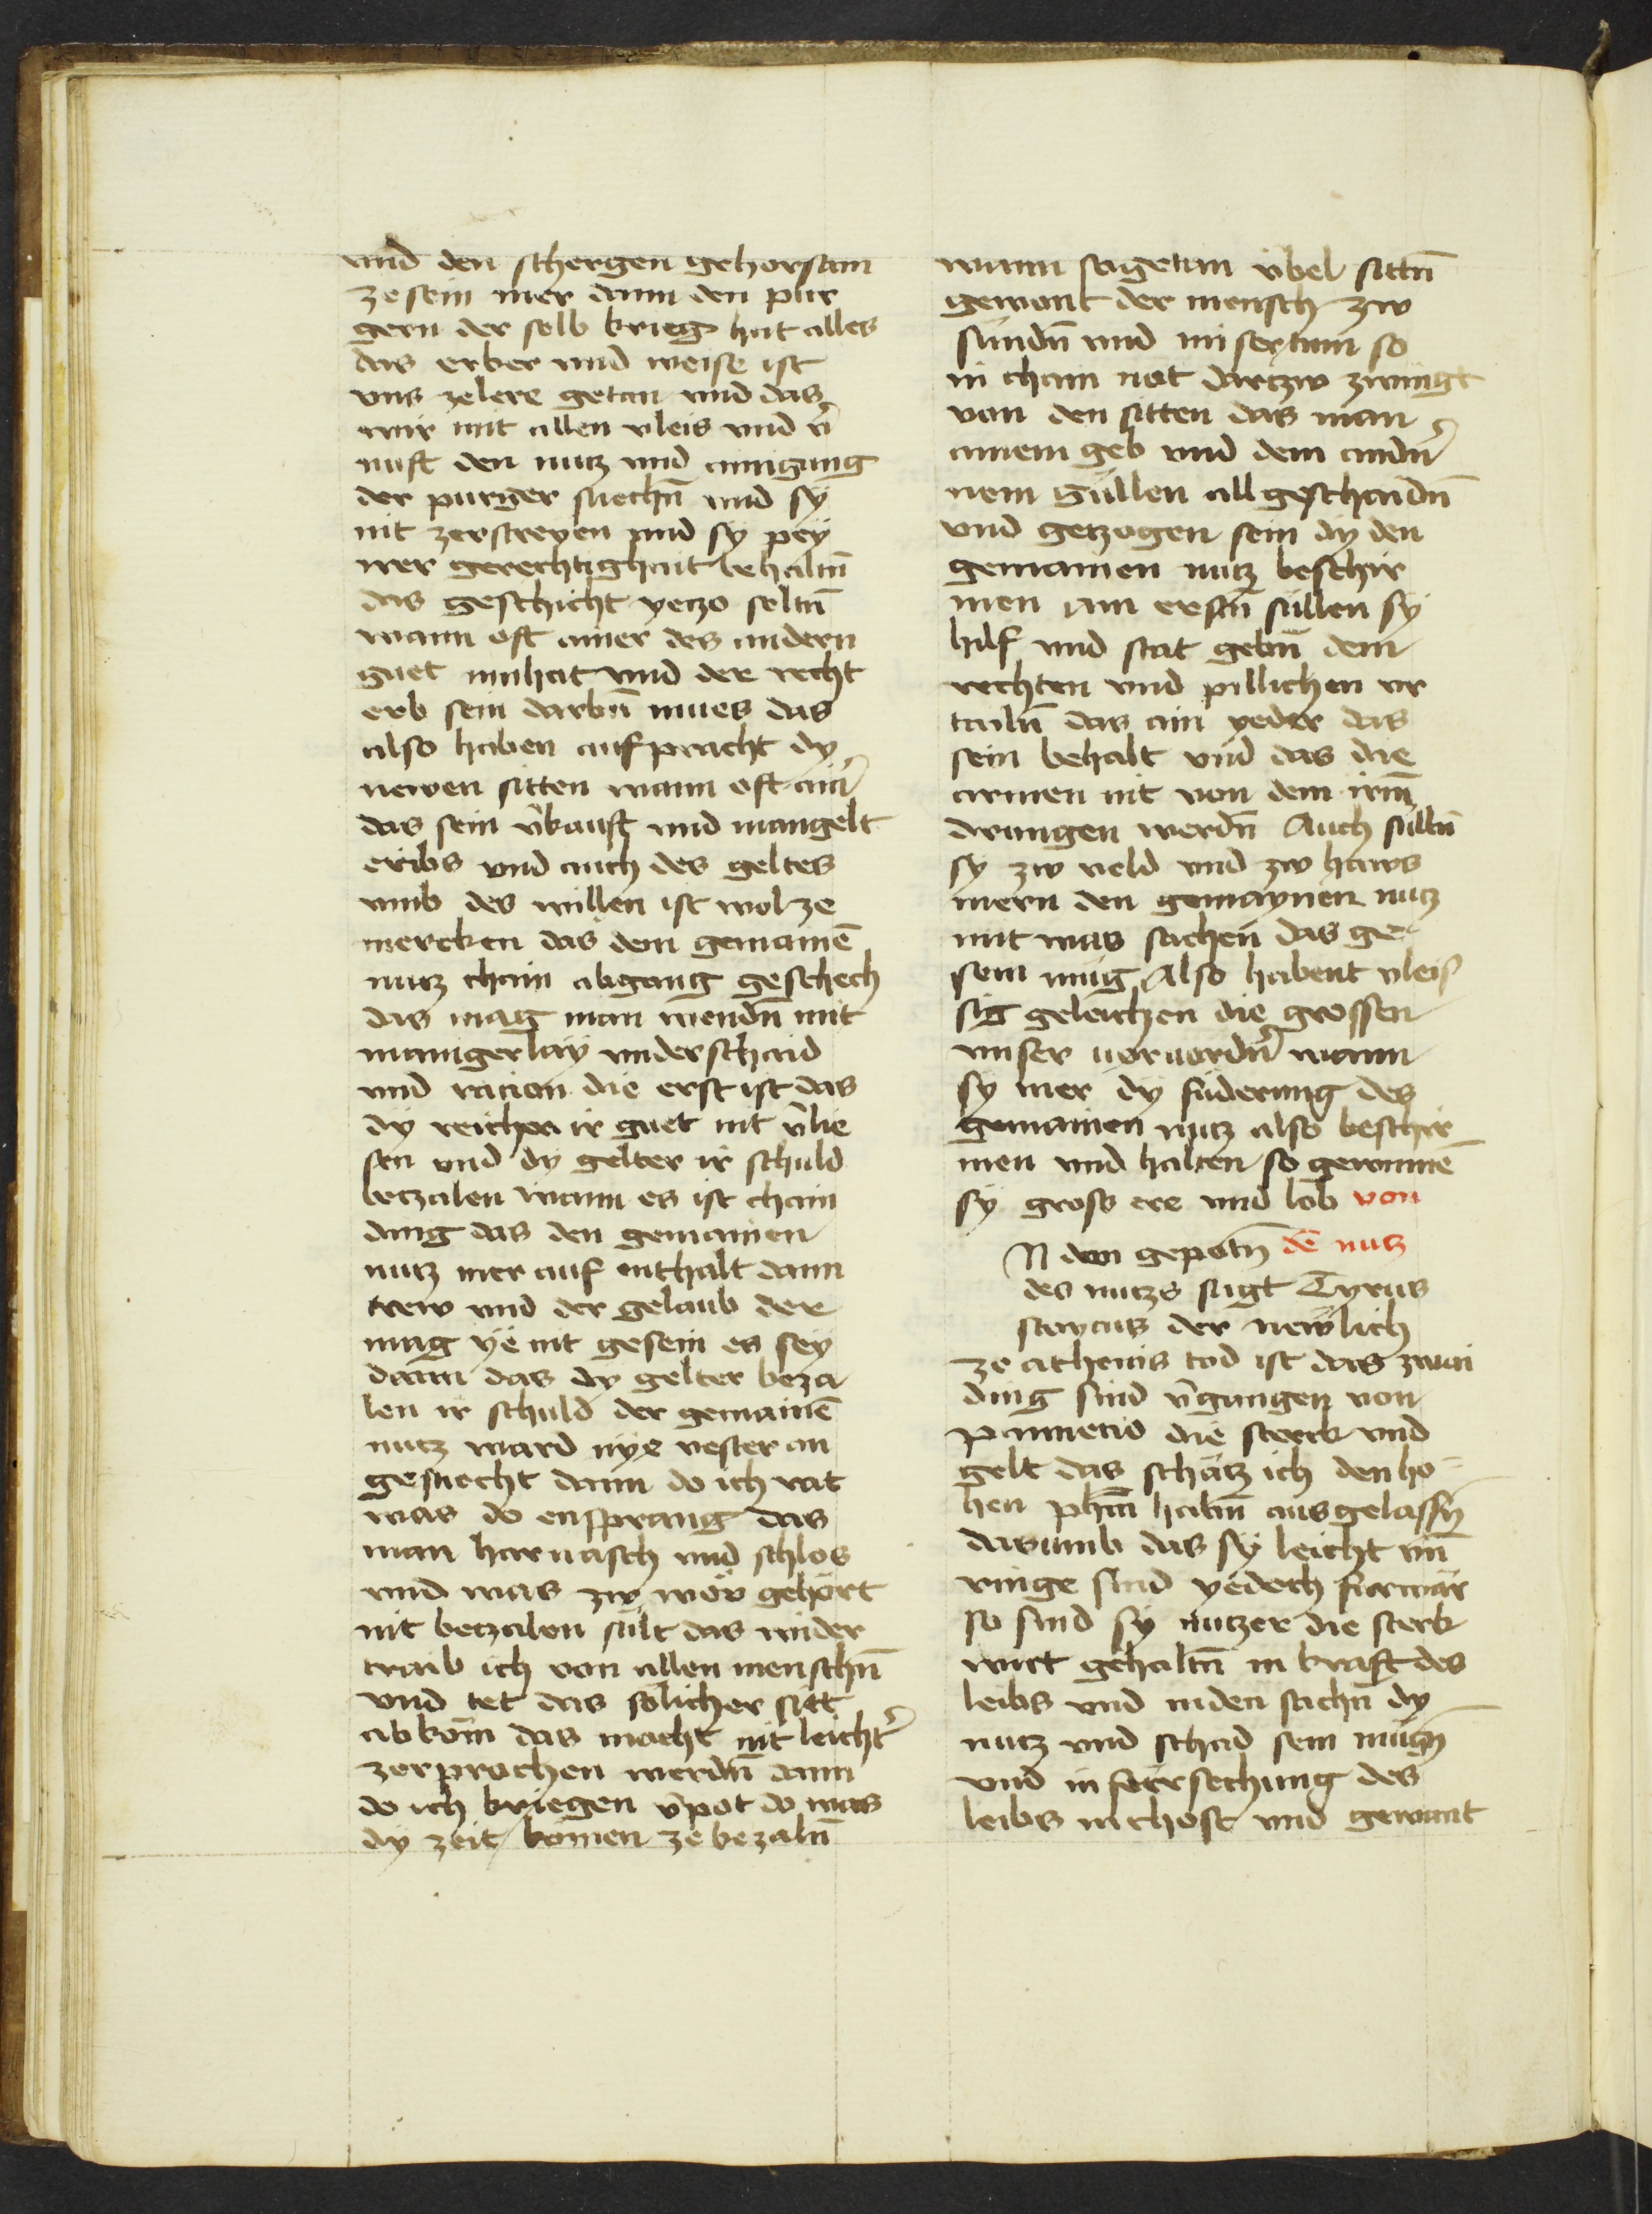 vnd den schergen gehorsam
ze sein mer dann den pur
gern der selb krieg hat alles
das erber vnd weise ist
vns ze lere getan vnd das
wir mit allen vleis vnd v̄
nuft den nutz vnd ainigung
der purger suechn̄ vnd sy
nit zerstreyen vnd sy pey
irer gerechtighait behaltn̄
das geschicht yetzo seltn̄
wann oft ainer des andern
guet innhat vnd der recht
erb sein darbn̄ mues das
also haben aufpracht dy
newen sitten wann oft ain̄
das sein v̄kauft vnd mangelt
eribs vnd auch des geltes
vmb des willen ist wol ze
mercken das dem gemainē
nutz chain abgang geschech
das mag man wendn̄ mit
manigerlay vnderschaid
vnd racion die erst ist das
dy reichen ir guet nit v̄lie
sen vnd dy gelter ir schuld
betzalen wann es ist chain
ding das den gemainen
nutz mer auf enthalt dann
trew vnd der gelaub der
mag ye nit gesein es sey
dann das dy gelter beza
len ir schuld der gemainē
nutz ward nye vester an
gesuecht dann do ich rat
was do ensprang das
man harnasch vnd schlos
vnd was zw wör gehört
nit betzalen sult das wider
traib ich von allen menschn̄
vnd tet das solicher sitt
abkom̄ das macht nit leicht̄
zerprochen werdn̄ dann
do ich kriegen v̄pot do was
dy zeit komen ze bezaln̄
wann sagetan v̈bel sittn̄
gewont der mensch zw
sundn̄ vnd missetun so
in chain not dartzw zwingt
von den sitten das man
ainem geb vnd dem andn̄
nem süllen all geschaidn̄
vnd getzogen sein dy den
gemainen nutz beschir
men am erstn̄ süllen sy
hilf vnd stat gebn̄ dem
rechten vnd pillichen vr
tailn̄ das ain yeder das
sein behalt vnd das die
armen nit von dem irm̄
drungen werdn̄ Auch sülln̄
sy zw veld vnd zw haws
mern den gemaynen nutz
mit was sachen das ge
sein mug Also habent vleis
sig geleichen die grossen
vnser voruordn̄ wann
sy mer dy füderung des
gemainen nutz also beschir
men vnd halten so gewinnē
sy gross ere vnd lob von
N den gepotn̄ dē nutz
des nutzs sagt Tyrus
stoycus der newlich
ze athenis tod ist das zwai
ding sind v̄gangen von
pannetio die sterk vnd
gelt das schätz ich den ho
hen phm̄ habn̄ ausgelassn̄
darumb das sy leicht vn̄
ringe sind yedoch furwar
so sind sy nutzer die sterk
wirt gehaltn̄ in kraft des
leibs vnd in den sachn̄ dy
nutz vnd schad sein mugn̄
vnd in fürsechung des
leibs in chost vnd gewant